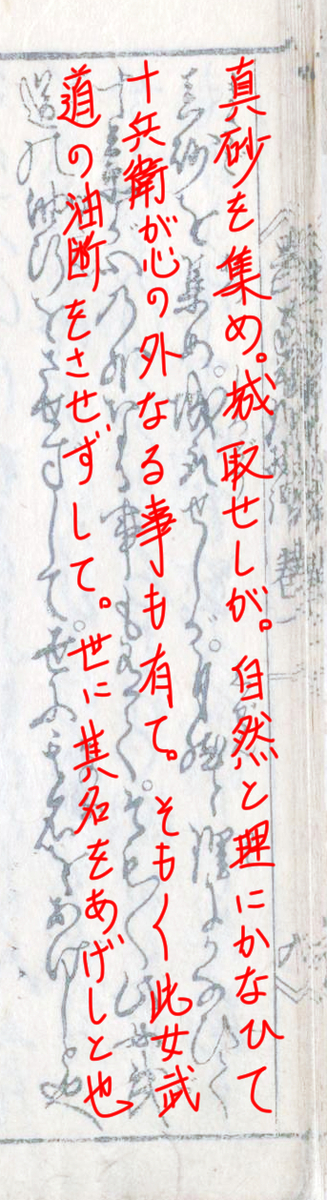 真砂を集め。城取せしが。自然と理にかなひて
十兵衛が心の外なる事も有て。そも〱此女武
道の油断をさせずして。世に其名をあげしと也